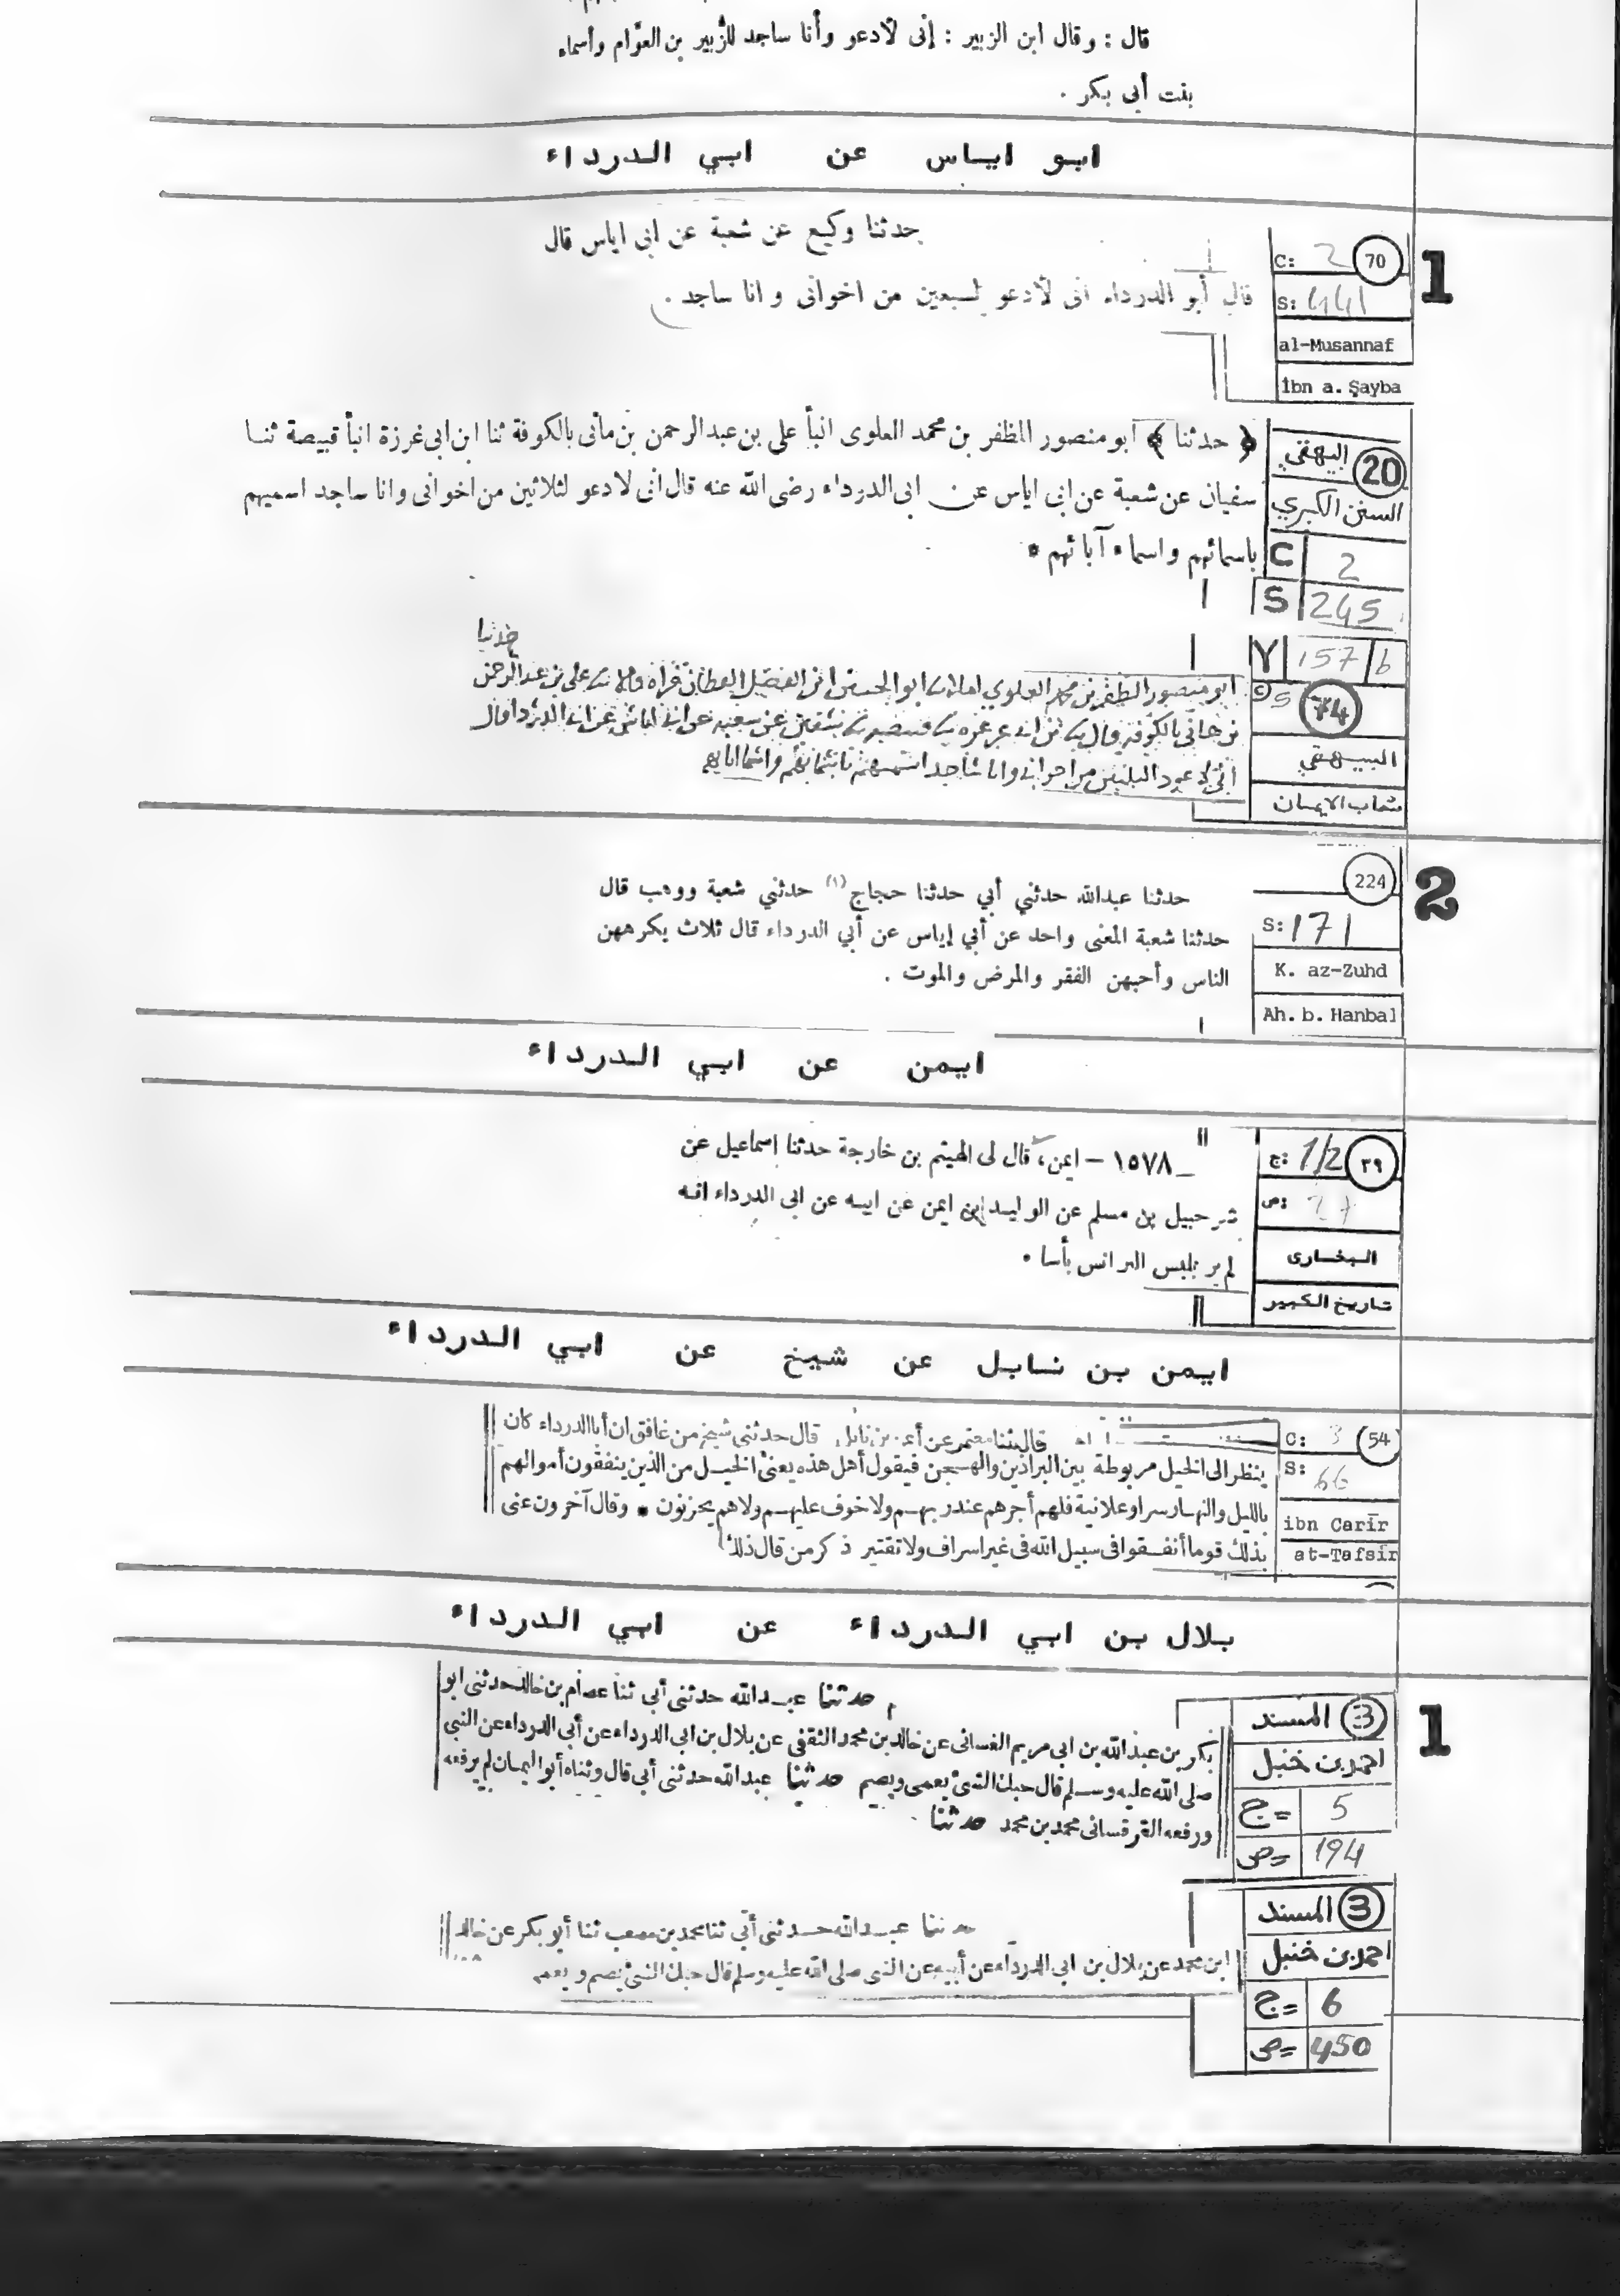 قال : وقال ابن الزبير : إنى لأدعو وأنا ساجد للزُّبير بن العوَّام وأسماء
بنت أبى بكر .
ابو اياس عن ابي الدرداء
1
C: 2 70
S: 441
al-Musannaf
ibn a. Şayba
حدثنا وكيع عن شعبة عن ابى اياس قال
قال أبو الدرداء انى لأدعو لسبعين من اخوانى و انا ساجد .
البيهقي 20
السنن الكبري
C 2
S 245
﴿ حدثنا ﴾ ابو منصور المظفر بن محمد العلوى انبأ على بن عبد الرحمن بن مأتى بالكوفة ثنا ابن ابى غرزة انبأ قبيصة ثنا
سفيان عن شعبة عن ابى اياس عن ابى الدرداء رضى الله عنه قال انى لادعو لثلاثين من اخوانى وانا ساجد اسميهم
باسمائهم واسماء آبائهم *
Y 157 b
74
البيهقي
شعاب الايمان
ابو منصور العلوي
2
224
S: 171
K. az-Zuhd
Ah. b. Hanbal
حدثنا عبدالله حدثني أبي حدثنا حجاج (١) حدثني شعبة ووهب قال
حدثنا شعبة المعنى واحد عن أبي إياس عن أبي الدرداء قال ثلاث يكرههن
الناس وأحبهن الفقر والمرض والموت .
ايمن عن ابي الدرداء
ج: 1/2 ٣٩
ص: 27
البخارى
تاريخ الكبير
١٥٧٨ – ايمن، قال لى الهيثم بن خارجة حدثنا إسماعيل عن
شرحبيل بن مسلم عن الوليد ابن ايمن عن ابيه عن ابى الدرداء انه
لم ير بلبس البرانس بأسا .
ايمن بن نابل عن شيخ عن ابي الدرداء
C: 3 54
S: 66
ibn Carīr
at-Tafsīr
قال ثنا معتمر عن أيمن بن نابل قال حدثنى شيخ من غافق ان أبا الدرداء كان
ينظر الى الخيل مربوطة بين البراذين والهجن فيقول أهل هذه يعنى الخيل من الذين ينفقون أموالهم
بالليل والنهار سرا وعلانية فلهم أجرهم عند ربهم ولا خوف عليهم ولا هم يحزنون * وقال آخرون عنى
بذلك قوما أنفقوا فى سبيل الله فى غير اسراف ولا تقتير ذكر من قال ذلك
بلال بن ابي الدرداء عن ابي الدرداء
1
3 المسند
احمد بن حنبل
ج= 5
ص= 194
حدثنا عبد الله حدثنى أبى ثنا عصام بن خالد حدثنى ابو
بكر بن عبد الله بن ابى مريم الغسانى عن خالد بن محمد الثقفى عن بلال بن ابى الدرداء عن أبى الدرداء عن النبى
صلى الله عليه وسلم قال حبك الشئ يعمى ويصم حدثنا عبد الله حدثنى أبى قال وثناه أبو اليمان لم يرفعه
ورفعه القرقسانى محمد بن محمد حدثنا
3 المسند
احمد بن حنبل
ج= 6
ص= 450
حدثنا عبد الله حدثنى أبى ثنا محمد بن مصعب ثنا أبو بكر عن خالد
ابن محمد عن بلال بن ابى الدرداء عن أبيه عن النبى صلى الله عليه وسلم قال حبك الشئ يصم و يعمى